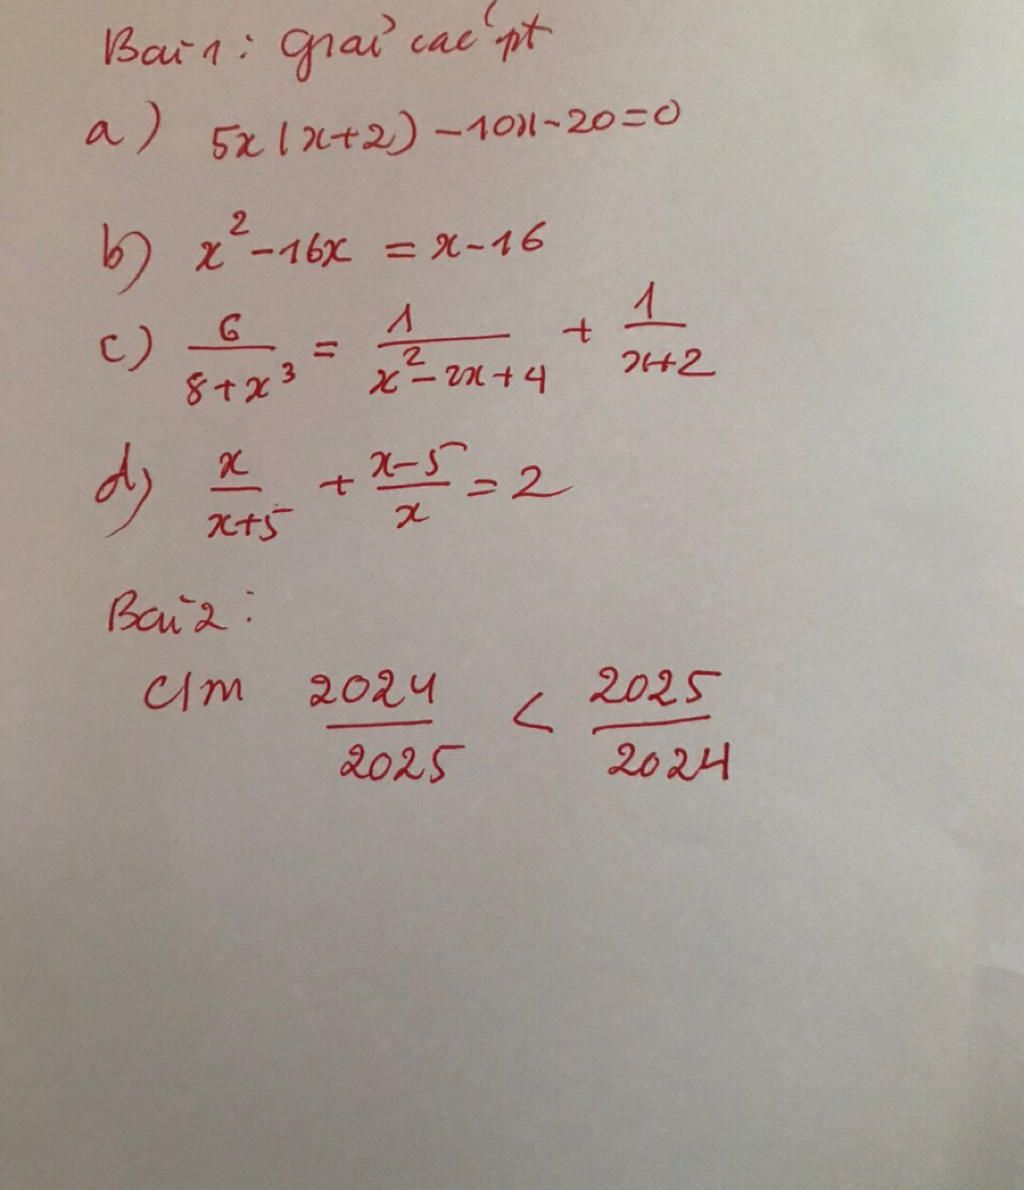 Bài 1: Giải các pt
a) 5x(x+2) - 10x - 20 = 0
b) x² - 16x = x - 16
c) 6/(8+x³) = 1/(x² - 2x + 4) + 1/(x+2)
d) x/(x+5) + (x-5)/x = 2
Bài 2:
C/m 2024/2025 < 2025/2024